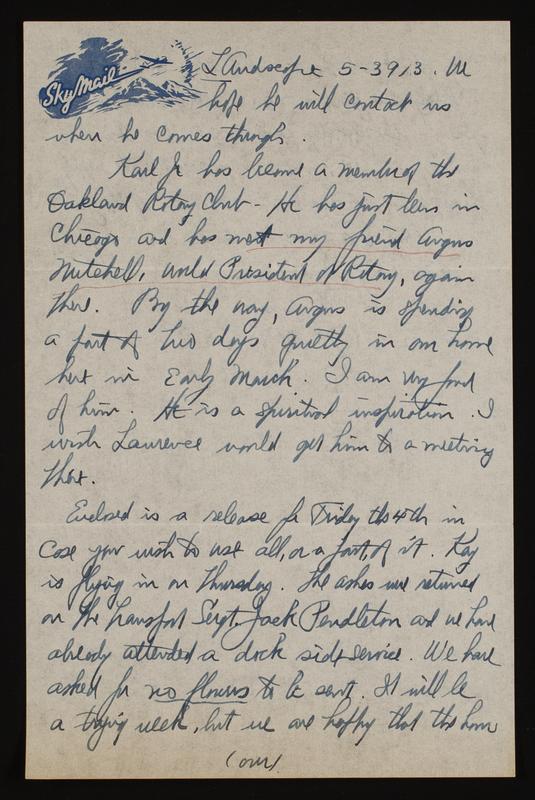 Sky Mail
LAndscape 5-3913. We
hope he will contact us
when he comes through.
Karl Jr has become a member of the
Oakland Rotary Club - He has just been in
Chicago and has met my friend Angus
Mitchell, World President of Rotary, again
there. By the way, Angus is spending
a part of two days quietly in our home
here in Early March. I am very fond
of him. He is a spiritual inspiration. I
wish Laurence would get him to a meeting
there.
Enclosed is a release for Friday the 4th in
case you wish to use all, or a part, of it. Kay
is flying in on Thursday. The ashes were returned
on the transport Sergt. Jack Pendleton and we have
already attended a dock side service. We have
asked for no flowers to be sent. It will be
a trying week, but we are happy that the home
(over)